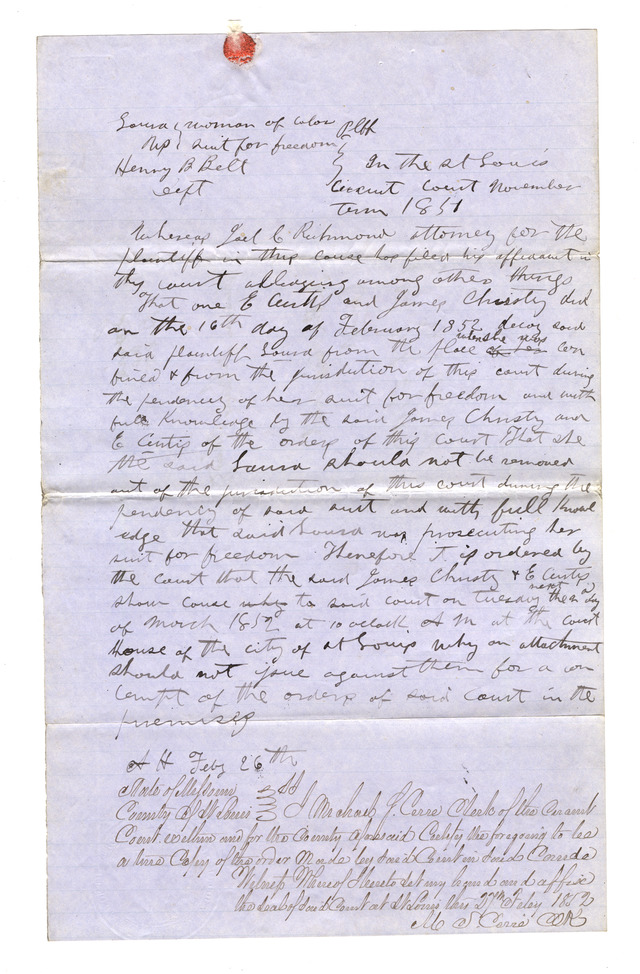 Laura woman of color pltff
vs suit for freedom
Henry B Belt In the St Louis
deft Circuit court November
term 1851
Whereas Joel C Richmond attorney for the
plaintiff in this cause has filed his affidavit in
this court alledging among other things
That one E Curtis and James Christy did
on the 16th day of February 1852 decoy said
said plaintiff Laura from the place where she was con
fined & from the jurisdiction of this court during
the pendency of her suit for freedom and with
full Knowledge by the said James Christy and
E Curtis of the orders of this Court That she
the said Laura should not be removed
out of the jurisdiction of this court during the
pendency of said suit and with full Knowl
edge that said Laura was prosecuting her
suit for freedom Therefore it is ordered by
the court that the said James Christy & E Curtis
show cause to said court on tuesday next the day
of March 1852 at 10 oclock A M at the court
House of the city of St Louis why an attachment
should not issue against them for a con
tempt of the orders of said court in the
premises
Feby 26th
State of Missouri
County of St Louis I Michael S. Cerre Clerk of the Circuit
Court within and for the County aforesaid Certify the foregoing to be
a true Copy of the order Made by said Court in said Cause
Witness Whereof I hereto set my hand and affix
the seal of said Court at St Louis this 27th Feby 1852
M. S. Cerre Clk